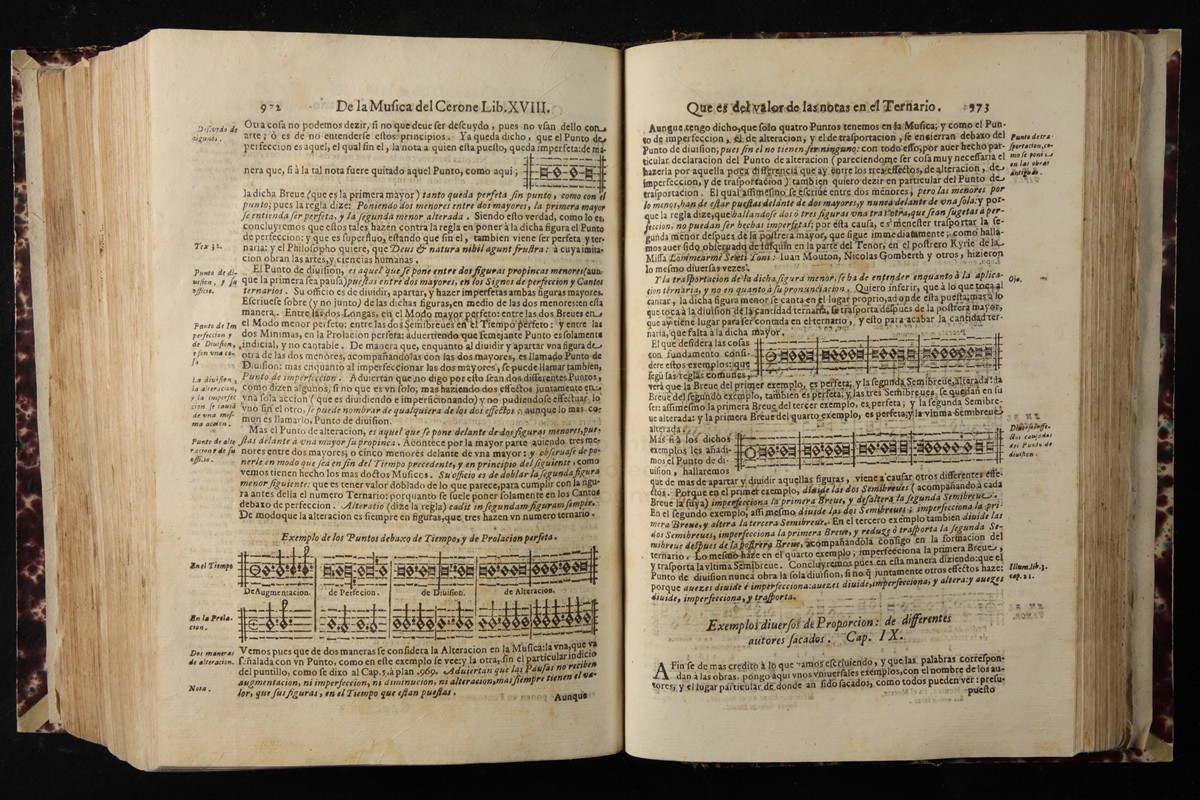 972 De la Musica del Cerone Lib.XVIII.
Descuydo de
algunos.
Otra cosa no podemos dezir, si no que deue ser descuydo, pues no vsan dello con
arte; ò es de no entenderse estos principios. Ya queda dicho, que el Punto de
perfeccion es aquel, el qual sin el, la nota a quien esta puesto, queda imperfeta: de ma-
nera que, si à la tal nota fuere quitado aquel Punto, como aqui;
la dicha Breue (que es la primera mayor) tanto queda perfeta sin punto, como con el
punto; pues la regla dize: Poniendo dos menores entre dos mayores, la primera mayor
se entienda ser perfeta, y la segunda menor alterada. Siendo esto verdad, como lo es,
concluyremos que estos tales hazen contra la regla en poner à la dicha figura el Punto
de perfeccion: y que es superfluo, estando que sin el, tambien viene ser perfeta y ter-
Tex 32.
naria: y el Philosopho quiere, que Deus & natura nihil agunt frustra: à cuya imita-
cion obran las artes, y ciencias humanas.
Punto de di-
uision, y su
officio.
El Punto de diuision, es aquel que se pone entre dos figuras propincas menores (aun
que la primera sea pausa) puestas entre dos mayores, en los Signos de perfeccion y Cantos
ternarios. Su officio es de diuidir, apartar, y hazer imperfetas ambas figuras mayores.
Escriuese sobre (y no junto) de las dichas figuras, en medio de las dos menores: en esta
manera. Entre las dos Longas, en el Modo mayor perfeto: entre las dos Breues en
Punto de Im
perfeccion e
de Diuision,
e son vna co-
sa
el Modo menor perfeto: entre las dos Semibreues en el Tiempo perfeto: y entre las
dos Minimas, en la Prolacion perfeta: aduertiendo que semejante Punto es solamente
indicial, y no cantable. De manera que, enquanto al diuidir y apartar vna figura de
otra de las dos menores, acompañandolas con las dos mayores, es llamado Punto de
Diuision: mas enquanto al imperfeccionar las dos mayores, se puede llamar tambien,
La diuision,
la alteracion,
y la imperfec
cion se causã
de vna mes-
ma accion.
Punto de imperfeccion. Aduiertan que no digo por esto sean dos differentes Puntos,
como dizen algunos, si no que es vn solo, mas haziendo dos effectos juntamente en
vna sola accion (que es diuidiendo e imperficionando) y no pudiendose effectuar lo
vno sin el otro, se puede nombrar de qualquiera de los dos effectos: aunque lo mas co-
mun es llamarlo, Punto de diuision.
Punto de alte
racion de su
officio.
Mas el Punto de alteracion, es aquel que se pone delante de dos figuras menores, pue-
stas delante à vna mayor su propinca. Acontece por la mayor parte auiendo tres me-
nores entre dos mayores; o cinco menores delante de vna mayor: y obseruase de po-
nerle en modo que sea en fin del Tiempo precedente, y en principio del siguiente, como
vemos tienen hecho los mas doctos Musicos. Su officio es de doblar la segunda figura
menor siguiente: que es tener valor doblado de lo que parece, para cumplir con la figu-
ra antes della el numero Ternario: porquanto se suele poner solamente en los Cantos
debaxo de perfeccion. Alteratio (dize la regla) cadit in segundam figuram semper.
De modo que la alteracion es siempre en figuras, que tres hazen vn numero ternario.
Exemplo de los Puntos debaxo de Tiempo, y de Prolacion perfeta.
En el Tiempo
De Augmentacion. de Perfecion. de Diuision. de Alteracion.
En la Prola-
cion.
Dos maneras
de alteracion.
Vemos pues que de dos maneras se considera la Alteracion en la Musica: la vna, que va
señalada con vn Punto, como en este exemplo se vee: y la otra, sin el particular indicio
del puntillo, como se dixo al Cap. 5. à plan. 969. Aduiertan que las Pausas no reciben
Nota.
augmentacion, ni imperfeccion, ni diminucion, ni alteracion, mas siempre tienen el va-
lor, que sus figuras, en el Tiempo que estan puestas.
Aunque
Que es del valor de las notas en el Ternario. 973
Aunque tengo dicho, que solo quatro Puntos tenemos en la Musica; y como el Pun-
to de imperfeccion, el de alteracion, y el de trasportacion, se encierran debaxo del
Punto de tra-
sportacion, co-
mo se pone
en las obras
antiguas.
Punto de diuision, pues sin el no tienen ser ninguno: con todo esso, por auer hecho par-
ticular declaracion del Punto de alteracion (pareciendome ser cosa muy necessaria el
hazerla por aquella poca differencia que ay entre los tres effectos, de alteracion, de
imperfeccion, y de trasportacion) tambien quiero dezir en particular del Punto de
trasportacion. El qual assimesmo se escriue entre dos menores, pero las menores por
lo menos, han de estar puestas delante de dos mayores, y nunca delante de vna sola: y por-
que la regla dize, que hallandose dos ò tres figuras vna tras otra, que sean sugetas à per-
feccion, no puedan ser hechas imperfetas; por esta causa, es menester trasportar la se-
gunda menor despues de la postrera mayor, que sigue immediatamente; como halla-
mos auer sido obseruado de Iusquin en la parte del Tenor, en el postrero Kyrie de la
Missa Lommearmè Sexti Toni: Iuan Mouton, Nicolas Gomberth y otros, hizieron
lo mesmo diuersas vezes.
Ojo.
Y la trasportacion de la dicha figura menor, se ha de entender enquanto à la aplica-
cion ternaria, y no en quanto à su pronunciacion. Quiero inferir, que à lo que toca al
cantar, la dicha figura menor se canta en el lugar proprio, adonde esta puesta; mas à lo
que toca à la diuision de la cantidad ternaria, se trasporta despues de la postrera mayor,
que ay tiene lugar para ser contada en el ternario, y esto para acabar la cantidad ter-
naria, que falta à la dicha mayor.
El que dessidera las cosas
con fundamento consi-
dere estos exemplos: que
segũ las reglas comunes,
verà que la Breue del primer exemplo, es perfeta; y la segunda Semibreue, alterada: la
Breue del segundo exemplo, tambien es perfeta; y las tres Semibreues se quedan en su
ser: assimesmo la primera Breue del tercer exemplo, es perfeta; y la segunda Semibre-
ue alterada: y la primera Breue del quarto exemplo, es perfeta; y la vltima Semibreue
alterada.
Mas si à los dichos
exemplos les añadi-
mos el Punto de di-
uision, hallaremos
Diuersos effe-
ctos causados
del Punto de
diuision.
que de mas de apartar y diuidir aquellas figuras, viene a causar otros differentes effe-
ctos. Porque en el primer exemplo, diuide las dos Semibreues (acompañando à cada
Breue la suya) imperfecciona la primera Breue, y desaltera la segunda Semibreue.
En el segundo exemplo, assi mesmo diuide las dos Semibreues; imperfecciona la pri-
mera Breue, y altera la tercera Semibreue. En el tercero exemplo tambien diuide las
dos Semibreues, imperfecciona la primera Breue, y reduze ò trasporta la segunda Se-
mibreue despues de la postrera Breue, acompañandola consigo en la formacion del
ternario. Lo mesmo haze en el quarto exemplo; imperfecciona la primera Breue,
y trasporta la vltima Semibreue. Concluyremos pues en esta manera diziendo: que el
Illum. lib. 3.
cap. 21.
Punto de diuision nunca obra la sola diuision, si no q̃ juntamente otros effectos haze:
porque auezes diuide è imperfecciona: auezes diuide, imperfecciona, y altera: y auezes
diuide, imperfecciona, y trasporta.
Exemplos diuersos de Proporcion: de differentes
autores sacados. Cap. IX.
A Fin se de mas credito à lo que vamos escriuiendo, y que las palabras correspon-
dan à las obras, pongo aqui vnos vniuersales exemplos, con el nombre de los au-
tores, y el lugar particular de donde an sido sacados, como todos pueden ver: presu-
puesto